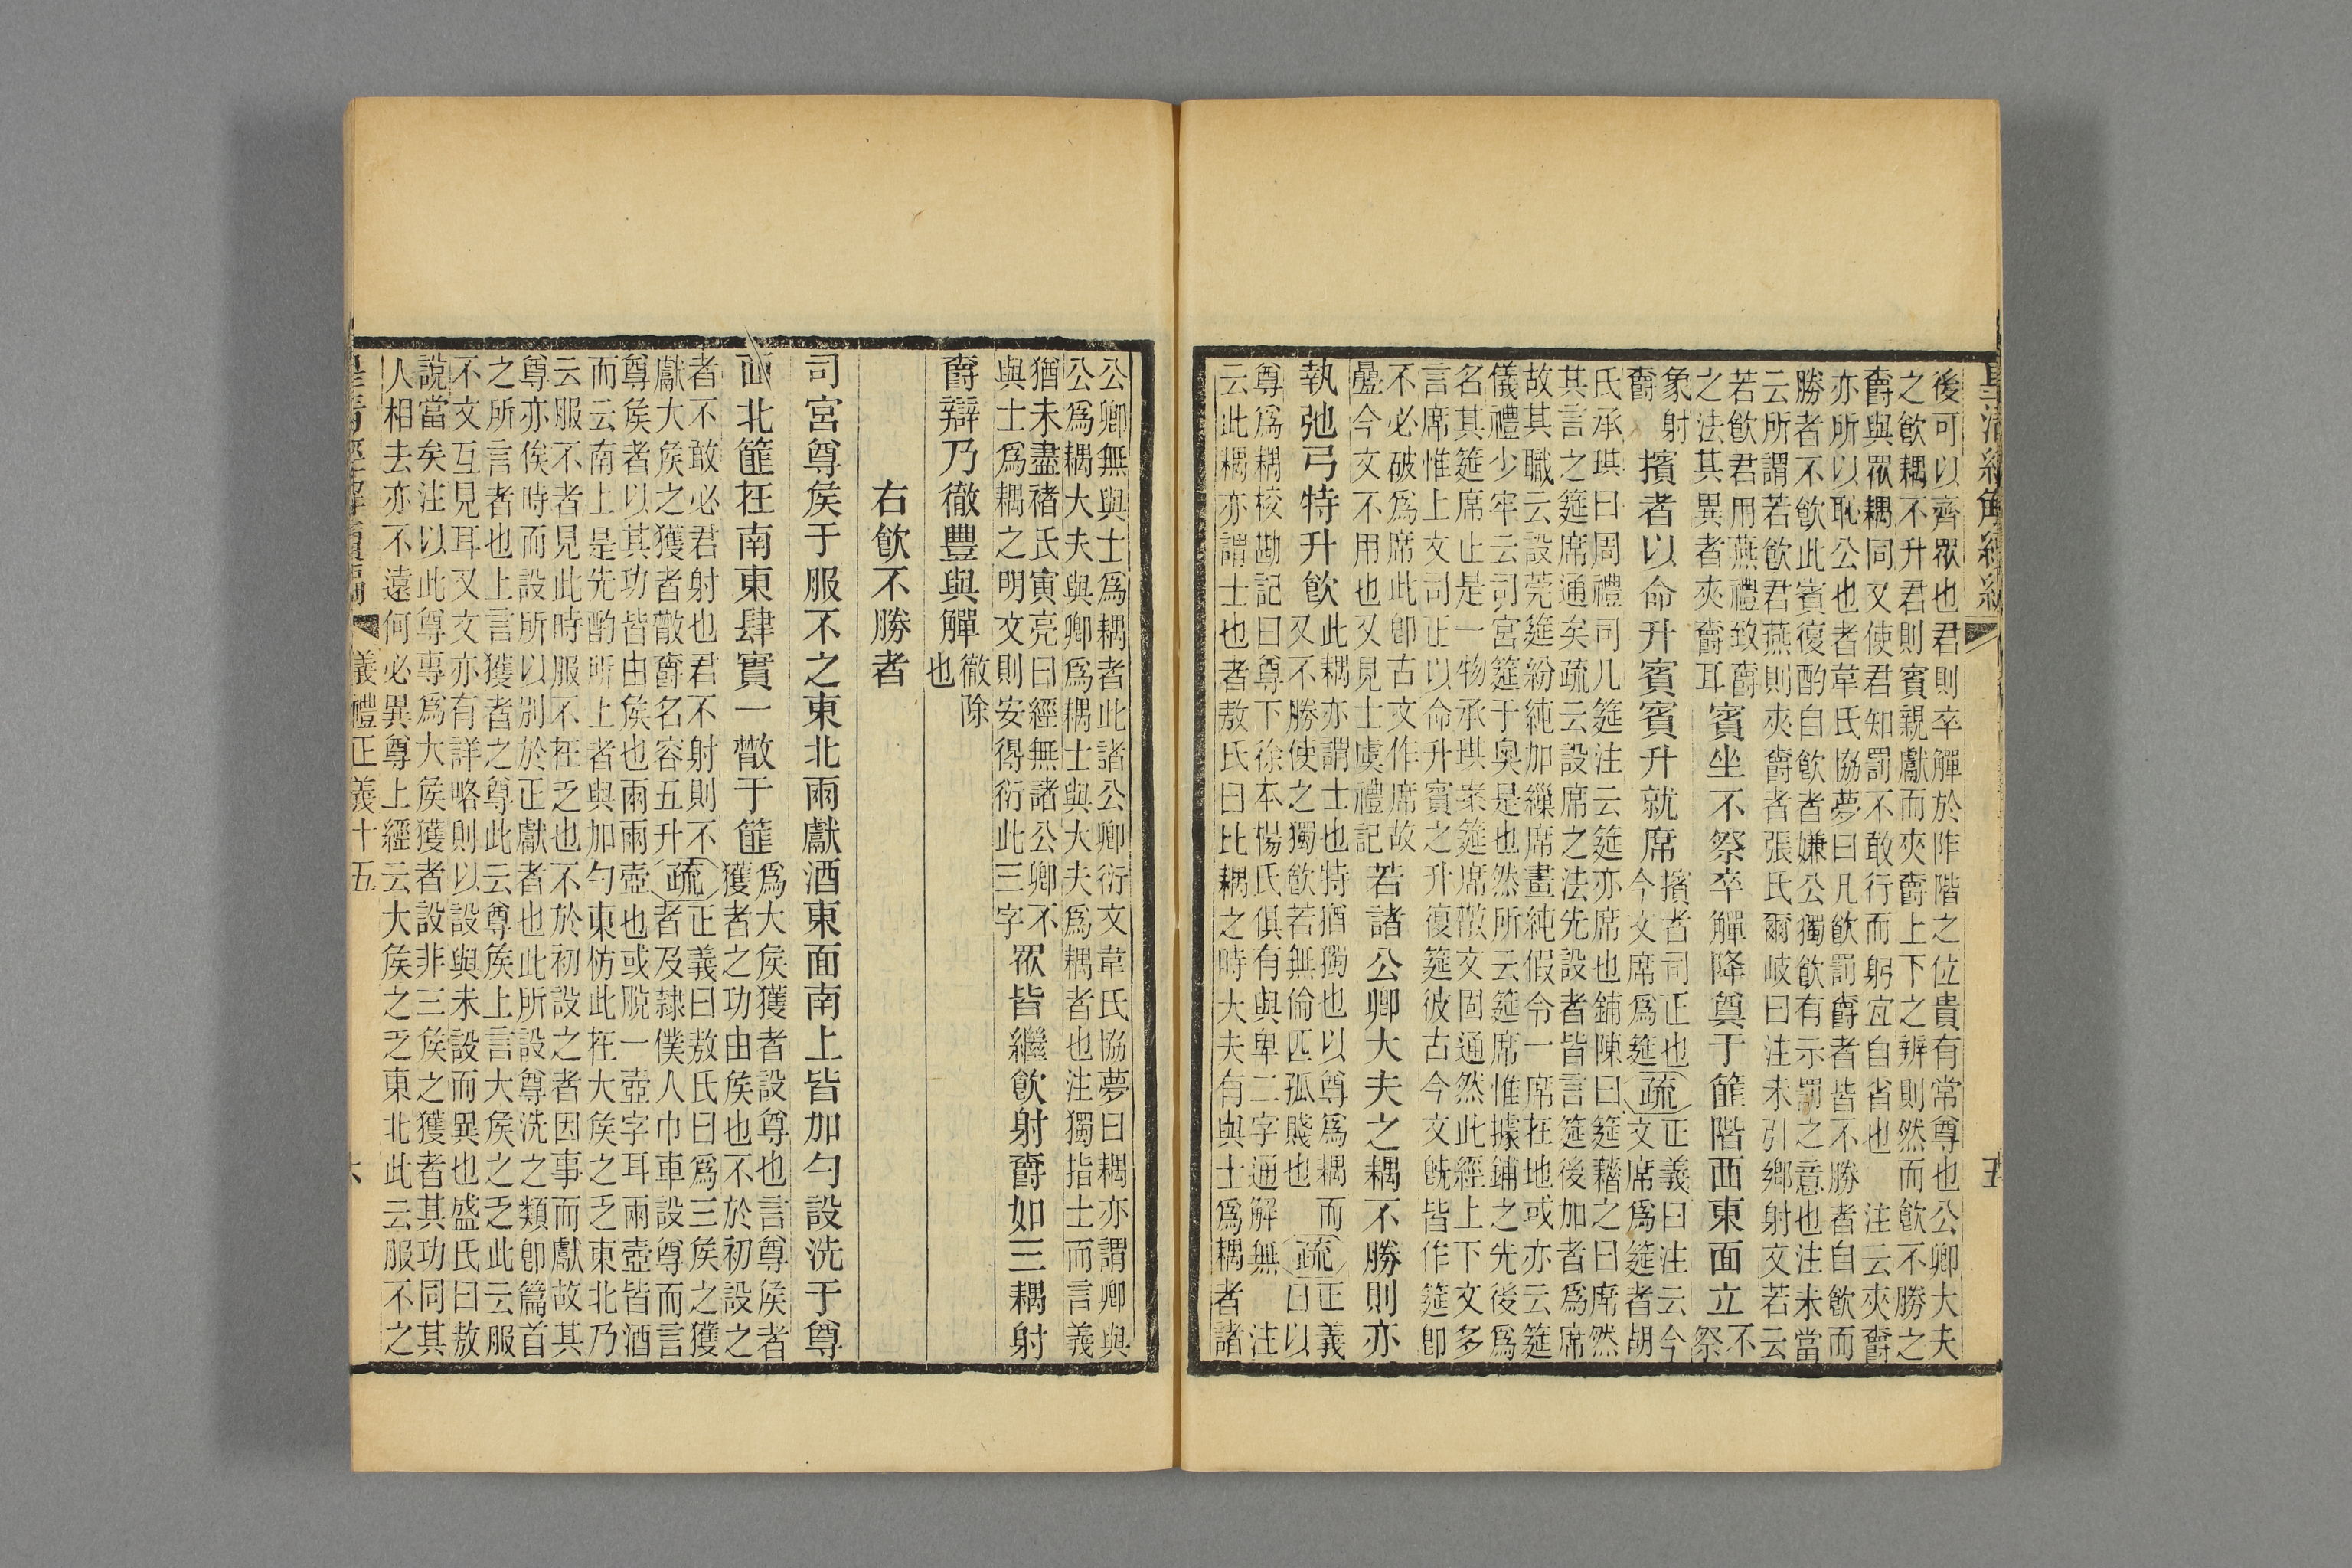 皇清經解續編
五
後可以齊眾也君則卒觶於阼階之位貴有常尊也公卿大夫
之飮耦不升君則賓親獻而夾爵上下之辨則然而飮不勝之
爵與眾耦同又使君知罰不敢行而躬宜自省也 注云夾爵
亦所以恥公也者韋氏協夢曰凡飮罰爵者皆不勝者自飮而
勝者不飮此賓復酌自飮者嫌公獨飮有示罰之意也注未當
云所謂若飮君燕則夾爵者張氏爾岐曰注未引鄉射文若云
若飮君用燕禮致爵
之法其異者夾爵耳
賓坐不祭卒觶降奠于篚階西東面立
不祭
象射
爵
擯者以命升賓賓升就席
擯者司正也
今文席爲筵
疏
正義曰注云今
文席爲筵者胡
氏承珙曰周禮司几筵注云筵亦席也鋪陳曰筵藉之曰席然
其言之筵席通矣疏云設席之法先設者皆言筵後加者爲席
故其職云設莞筵紛純加繅席畫純假令一席在地或亦云筵
儀禮少牢云司宮筵于奧是也然所云筵席惟據鋪之先後爲
名其筵席止是一物承珙案筵席散文固通然此經上下文多
言席惟上文司正以命升賓之升復筵彼古今文旣皆作筵卽
不必破爲席此卽古文作席故
疊今文不用也又見士虞禮記
若諸公卿大夫之耦不勝則亦
執弛弓特升飮
此耦亦謂士也特猶獨也以尊爲耦而
又不勝使之獨飮若無倫匹孤賤也
疏
正義
曰以
尊爲耦校勘記曰尊下徐本楊氏俱有與卑二字通解無 注
云此耦亦謂士也者敖氏曰比耦之時大夫有與士爲耦者諸
公卿無與士爲耦者此諸公卿衍文韋氏協夢曰耦亦謂卿與
公爲耦大夫與卿爲耦士與大夫爲耦者也注獨指士而言義
猶未盡褚氏寅亮曰經無諸公卿不
與士爲耦之明文則安得衍此三字
眾皆繼飮射爵如三耦射
爵辯乃徹豐與觶
徹除
也
右飮不勝者
司宮尊矦于服不之東北兩獻酒東面南上皆加勺設洗于尊
西北篚在南東肆實一散于篚
爲大矦獲者設尊也言尊矦者
獲者之功由矦也不於初設之
者不敢必君射也君不射則不
獻大矦之獲者散爵名容五升
疏
正義曰敖氏曰爲三矦之獲
者及隷僕人巾車設尊而言
尊矦者以其功皆由矦也兩壺也或脫一壺字耳兩壺皆酒
而云南上是先酌所上者與加勺東枋此在大矦之乏東北乃
云服不者見此時服不在乏也不於初設之者因事而獻故其
尊亦俟時而設所以別於正獻者也此所設尊洗之類卽篇首
之所言者也上言獲者之尊此云尊矦上言大矦之乏此云服
不文互見耳又文亦有詳略則以設與未設而異也盛氏曰敖
說當矣注以此尊專爲大矦獲者設非三矦之獲者其功同其
人相去亦不遠何必異尊上經云大矦之乏東北此云服不之
皇清經解續編
儀禮正義十五
六